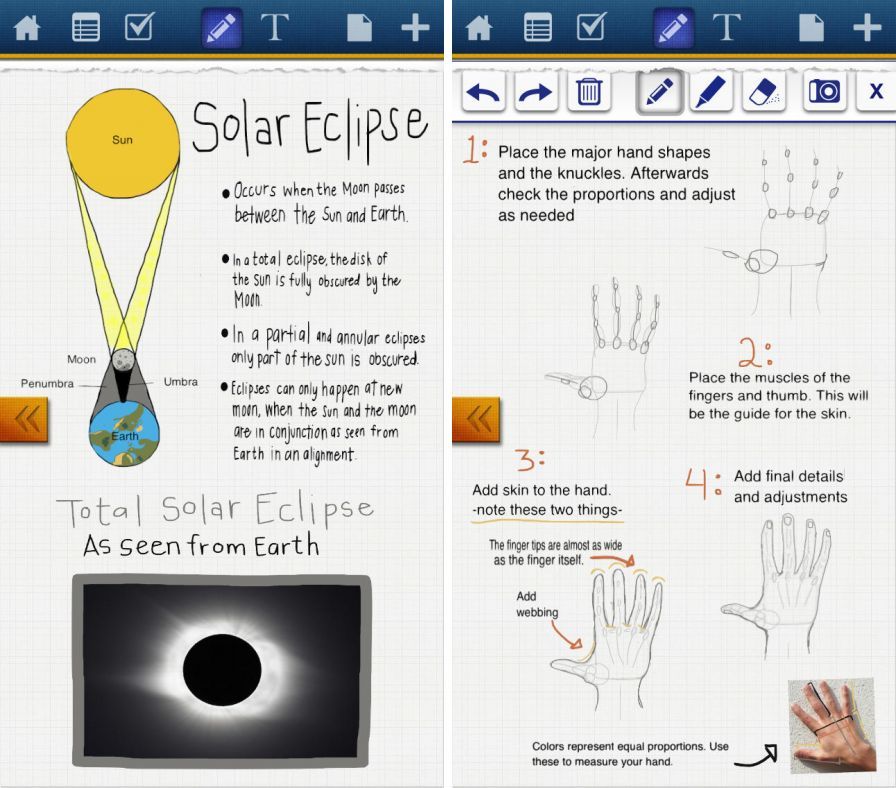 Solar Eclipse
Sun
• Occurs when the Moon passes
between the Sun and Earth.
• In a total eclipse, the disk of
the sun is fully obscured by the
Moon.
• In a partial and annular eclipses
only part of the sun is obscured.
• Eclipses can only happen at new
moon, when the sun and the moon
are in conjunction as seen from
Earth in an alignment.
Moon
Penumbra
Umbra
Earth
Total Solar Eclipse
As seen from Earth
T
X
1:
Place the major hand shapes
and the knuckles. Afterwards
check the proportions and adjust
as needed
2:
Place the muscles of the
fingers and thumb. This will
be the guide for the skin.
3:
Add skin to the hand.
-note these two things-
The finger tips are almost as wide
as the finger itself.
Add
webbing
4:
Add final details
and adjustments
Colors represent equal proportions. Use
these to measure your hand.